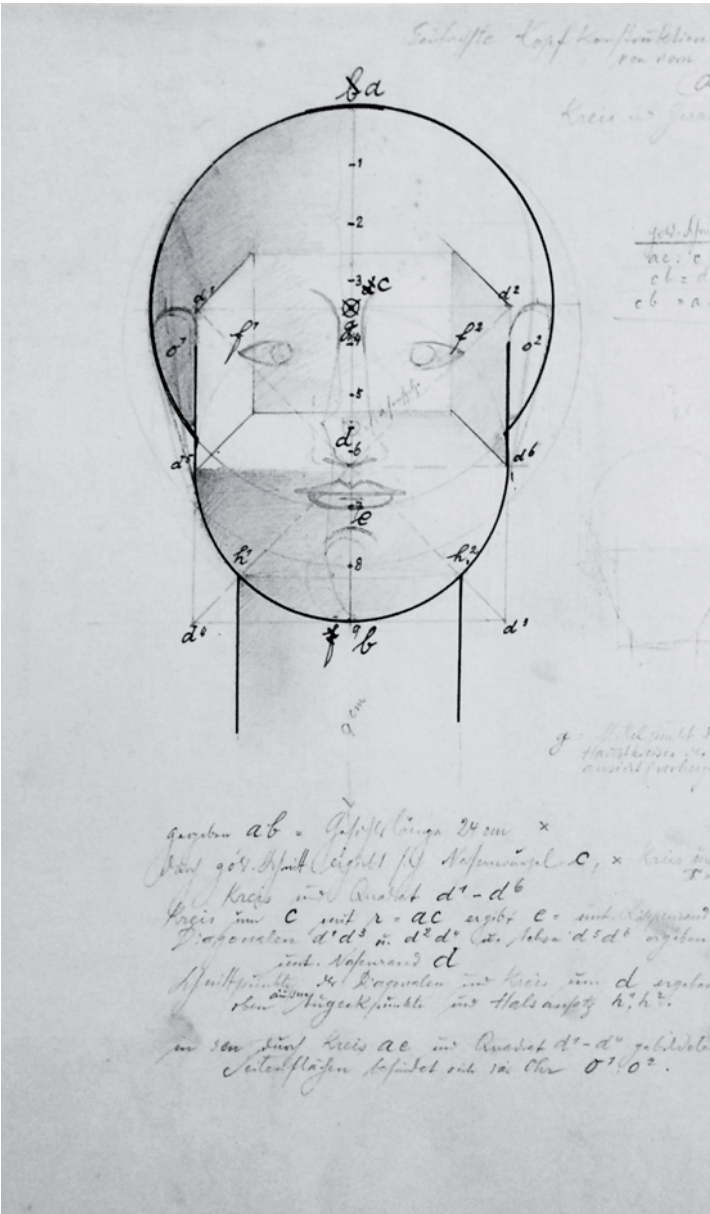 Einfachste Kopf Konstruktion
von vorn
Kreis und
göld. Schnitt
ac : c
cb = d
cb = a
b a
-1
-2
-3 c
d¹ d²
-4
f¹ f²
o¹ o²
-5
d -6
d⁵ d⁶
-7
e
h¹ h²
-8
d⁴ f 9 b d³
9 cm
g = Mittelpunkt
Hauptkreises der
ansicht (vorherge
gegeben ab = Gesichtslänge 24 cm ×
durch göld. Schnitt ergiebt sich Nasenwurzel c, × Kreis
Kreis und Quadrat d¹ - d⁶
Kreis um c mit r = ac ergibt e = unt. Lippenrand
Diagonalen d¹d³ u. d²d⁴ u. Achse d⁵d⁶ ergeben
unt. Nasenrand d
Schnittpunkte der Diagonalen und Kreis um d ergeben
oben äussere Augeckpunkte und Halsansatz h¹, h².
in den durch Kreis ac und Quadrat d¹ - d⁴ gebildeten
Seitenflächen befindet sich das Ohr o¹, o².